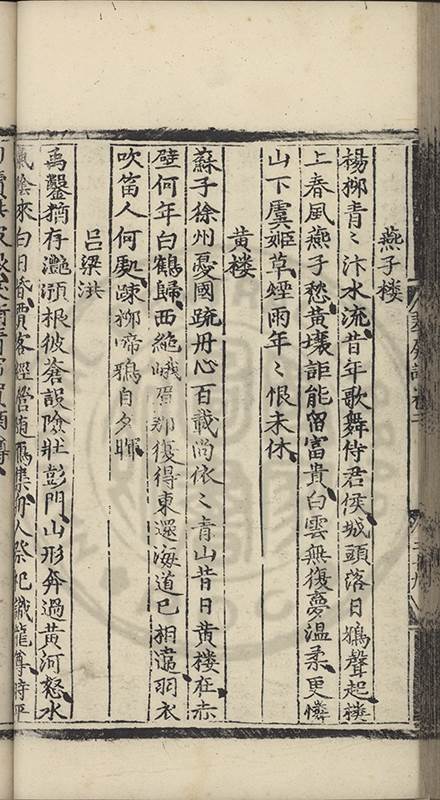 燕子楼
楊柳青〻汴水流昔年歌舞侍君侯城頭落日鴉聲起樓
上春風燕子愁黃壤詎能留富貴白雲無復夢溫柔更憐
山下虞姬草煙雨年〻恨未休
黃楼
蘇子徐州憂國疏丹心百載尚依〻青山昔日黃樓在赤
壁何年白鶴歸西絶峨眉那復得東還海道已相違羽衣
吹笛人何處踈柳啼鴉自夕暉
呂梁洪
禹鑿猶存灔澦根彼蒼設險壯彭門山形奔過黃河怒水
氣陰來白日昏賈客經營随鴈集舟人祭祀識龍尊時平